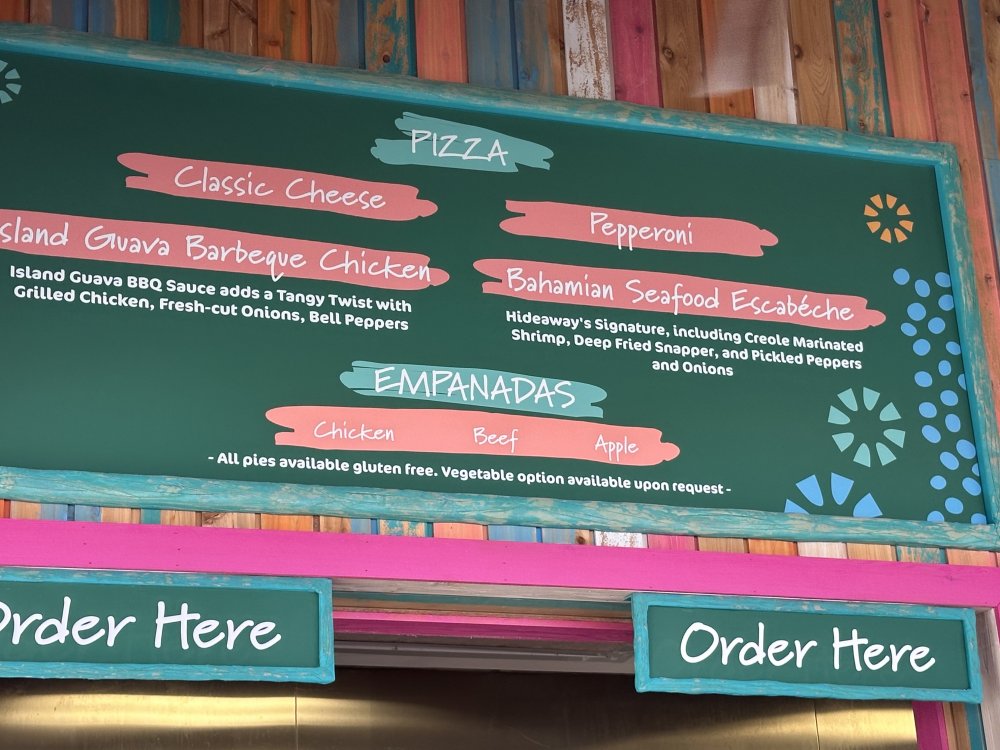 PIZZA
Classic Cheese
Island Guava Barbeque Chicken
Island Guava BBQ Sauce adds a Tangy Twist with
Grilled Chicken, Fresh-cut Onions, Bell Peppers
Pepperoni
Bahamian Seafood Escabéche
Hideaway's Signature, including Creole Marinated
Shrimp, Deep Fried Snapper, and Pickled Peppers
and Onions
EMPANADAS
Chicken Beef Apple
- All pies available gluten free. Vegetable option available upon request -
Order Here
Order Here